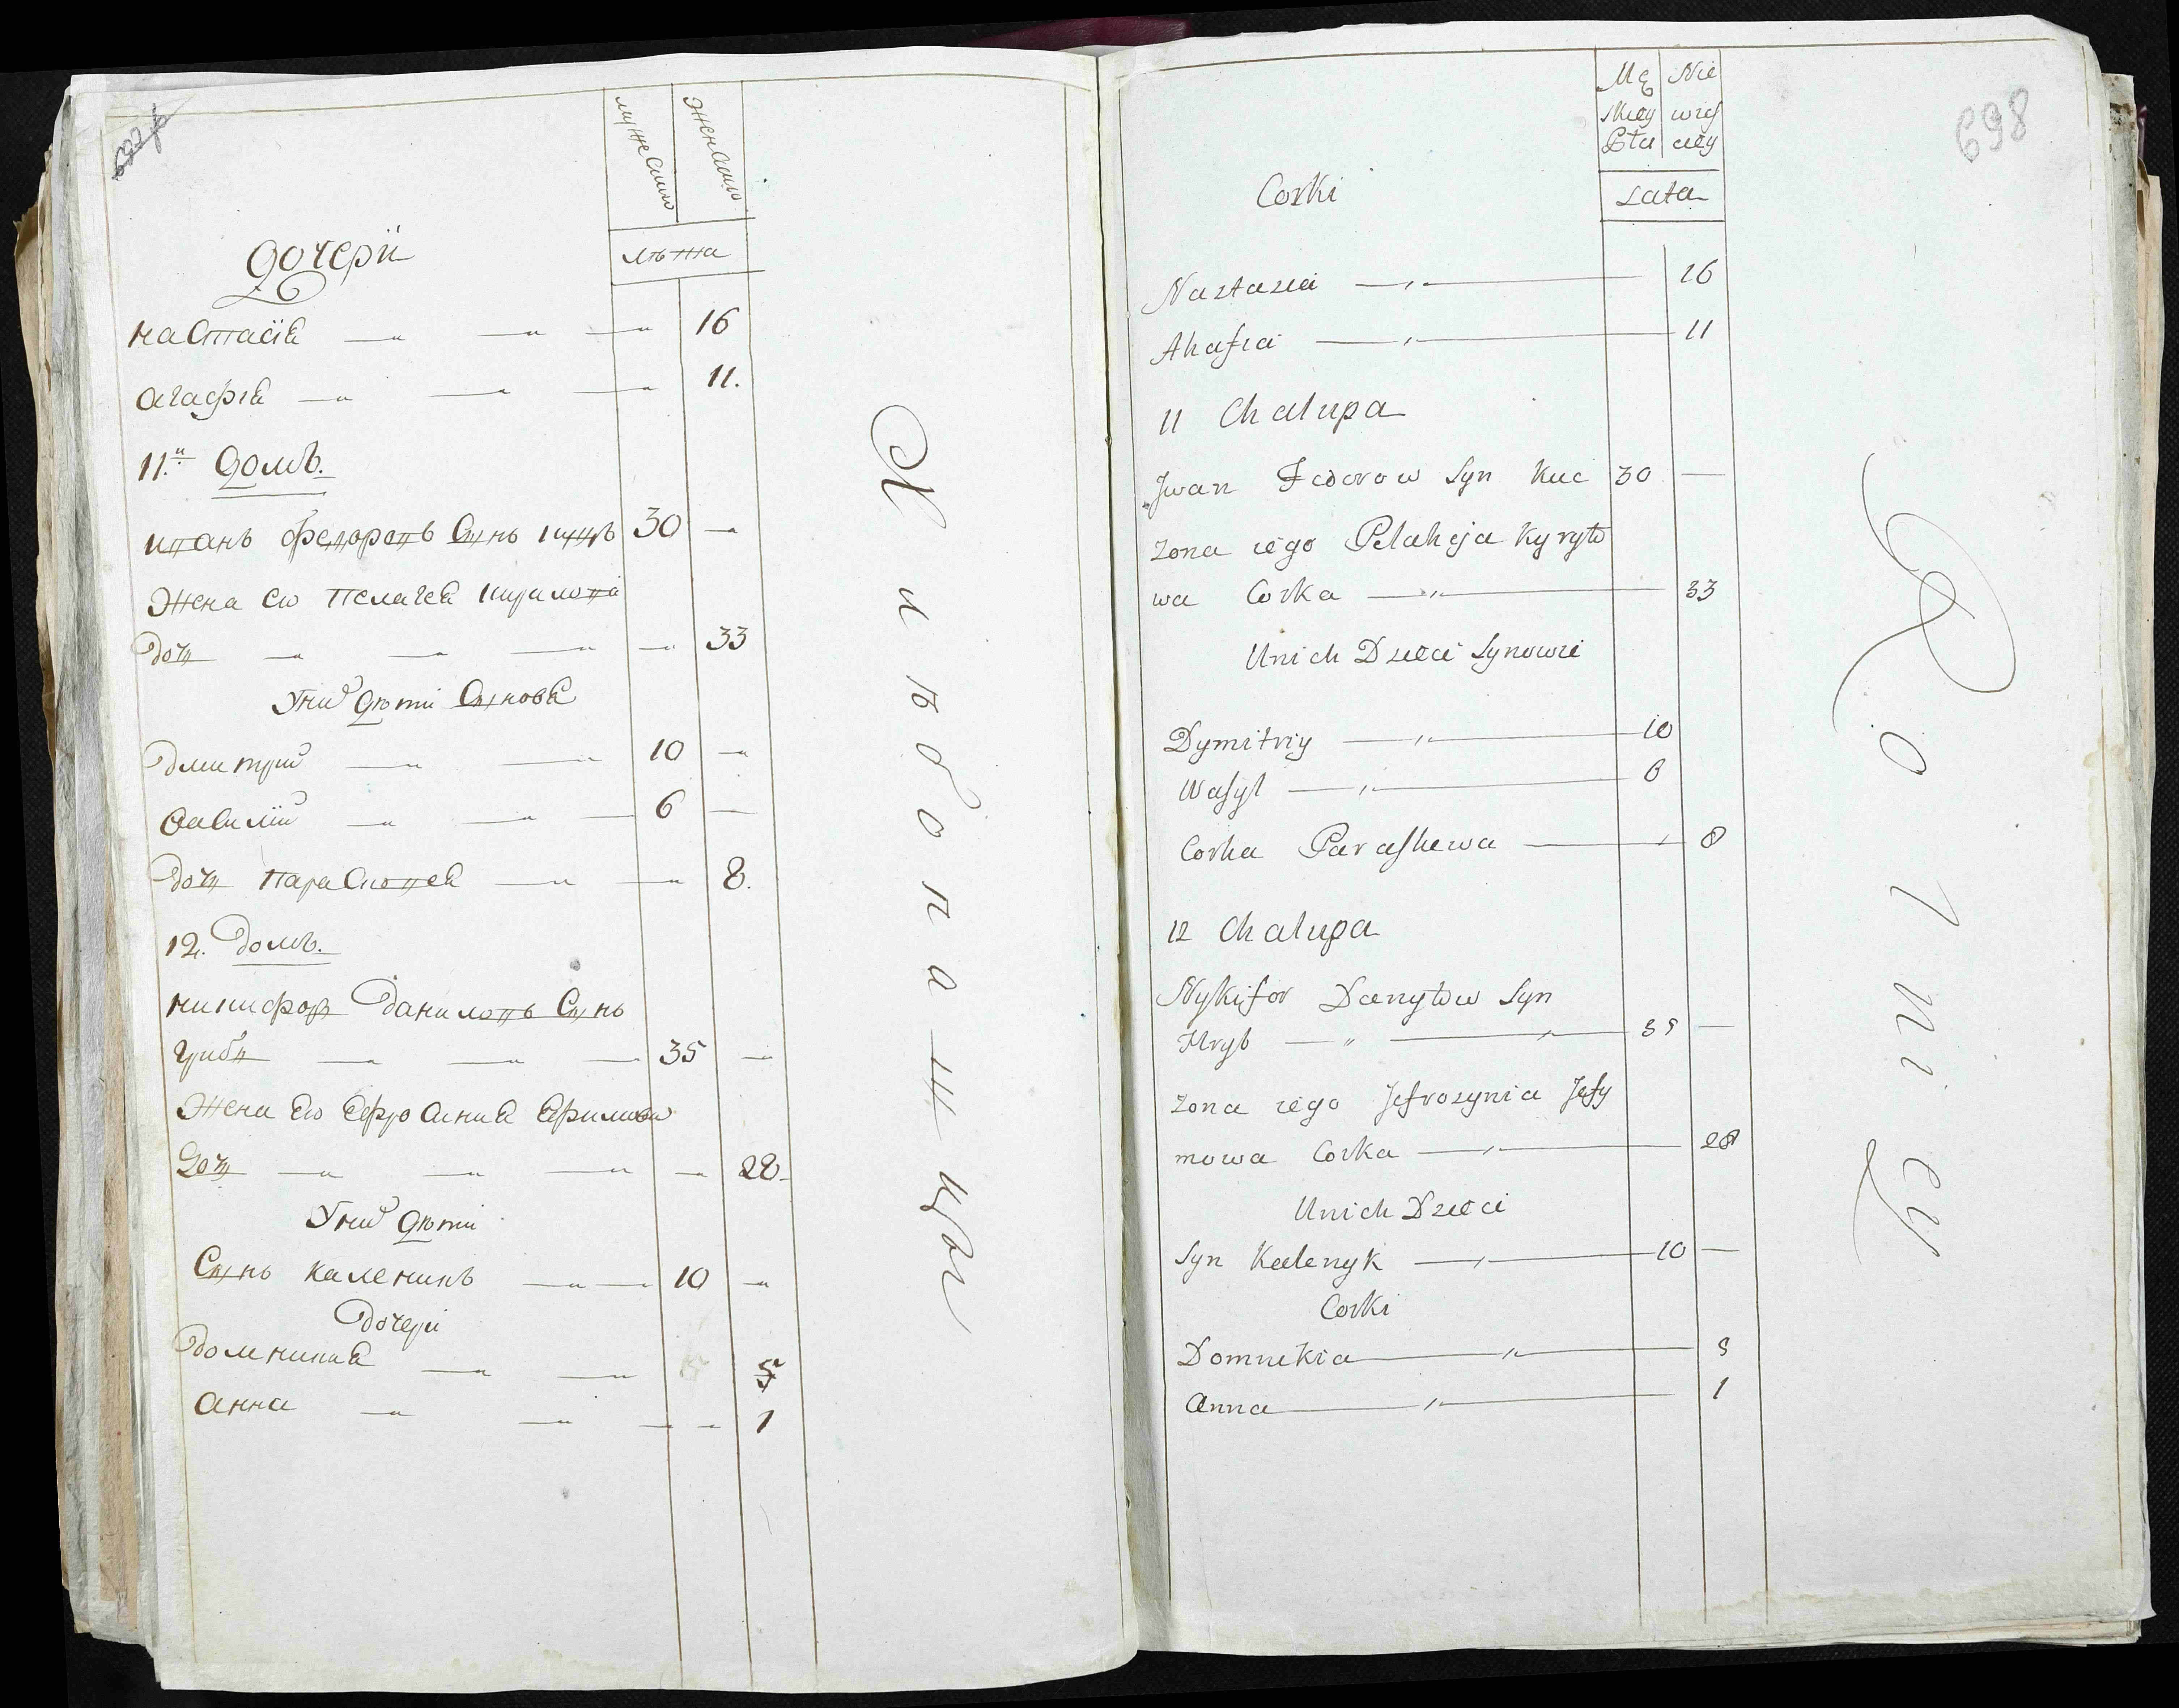 мужеска
женска
лѣта
дочери
настасія 16
агафія 11.
11.й домъ.
иванъ федоровъ Сынъ куцъ 30
Жена его Пелагея кирилова
дочь 33
Уних дѣти Сынове
дмитрий 10
василий 6
дочь Парасковея 8.
12. домъ.
никифор даниловъ Сынъ
грибъ 35
Жена его Ефросиния Ефимова
дочь 28
Уних дѣти
Сынъ каленикъ 10
дочери
домникия 5
анна 1
Хлѣбопашцы
698
Mę Nie
skiey wies
Płci ciey
Lata
Corki
Nastasia 16
Ahafia 11
11 Chalupa
Jwan Fedorow Syn Kuc 30
zona iego Pelaheja Kyryło
wa Corka 33
Unich Dzieci Synowie
Dymitriy 10
Wasyl 6
Corka Paraskewa 8
12 Chalupa
Nykifor Danyłow Syn
Hryb 35
zona iego Jefrozynia Jefy
mowa Corka 28
Unich Dzieci
Syn Kalenyk 10
Corki
Domnikia 5
Anna 1
Rolnicy